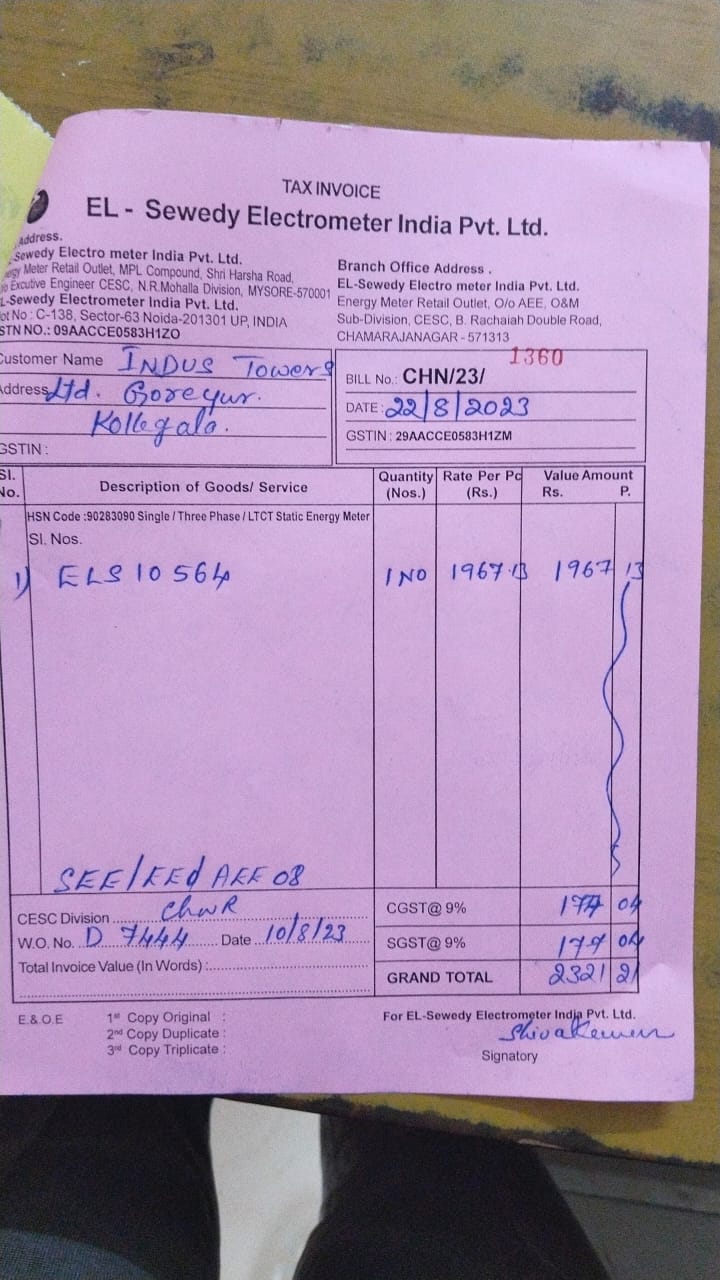 TAX INVOICE
EL - Sewedy Electrometer India Pvt. Ltd.
Address.
Sewedy Electro meter India Pvt. Ltd.
Meter Retail Outlet, MPL Compound, Shri Harsha Road,
Excutive Engineer CESC, N.R.Mohalla Division, MYSORE-570001
L-Sewedy Electrometer India Pvt. Ltd.
ot No : C-138, Sector-63 Noida-201301 UP, INDIA
STN NO.: 09AACCE0583H1ZO
Branch Office Address .
EL-Sewedy Electro meter India Pvt. Ltd.
Energy Meter Retail Outlet, O/o AEE, O&M
Sub-Division, CESC, B. Rachaiah Double Road,
CHAMARAJANAGAR - 571313
Customer Name INDUS Towers
Address Ltd. Goreyur.
Kollegala.
GSTIN :
1360
BILL No.: CHN/23/
DATE : 22/8/2023
GSTIN : 29AACCE0583H1ZM
Sl. No. Description of Goods/ Service Quantity (Nos.) Rate Per Pc (Rs.) Value Amount Rs. P.
HSN Code :90283090 Single / Three Phase / LTCT Static Energy Meter
Sl. Nos.
1) ELS 10 564 1 NO 1967.13 1967 13
SEE/ AEE 08
CESC Division ChnR
W.O. No. D 7444 Date 10/8/23
Total Invoice Value (In Words) :
CGST@ 9% 177 04
SGST@ 9% 177 04
GRAND TOTAL 2321 21
E.&O.E
1st Copy Original :
2nd Copy Duplicate :
3rd Copy Triplicate :
For EL-Sewedy Electrometer India Pvt. Ltd.
Shivakumar
Signatory